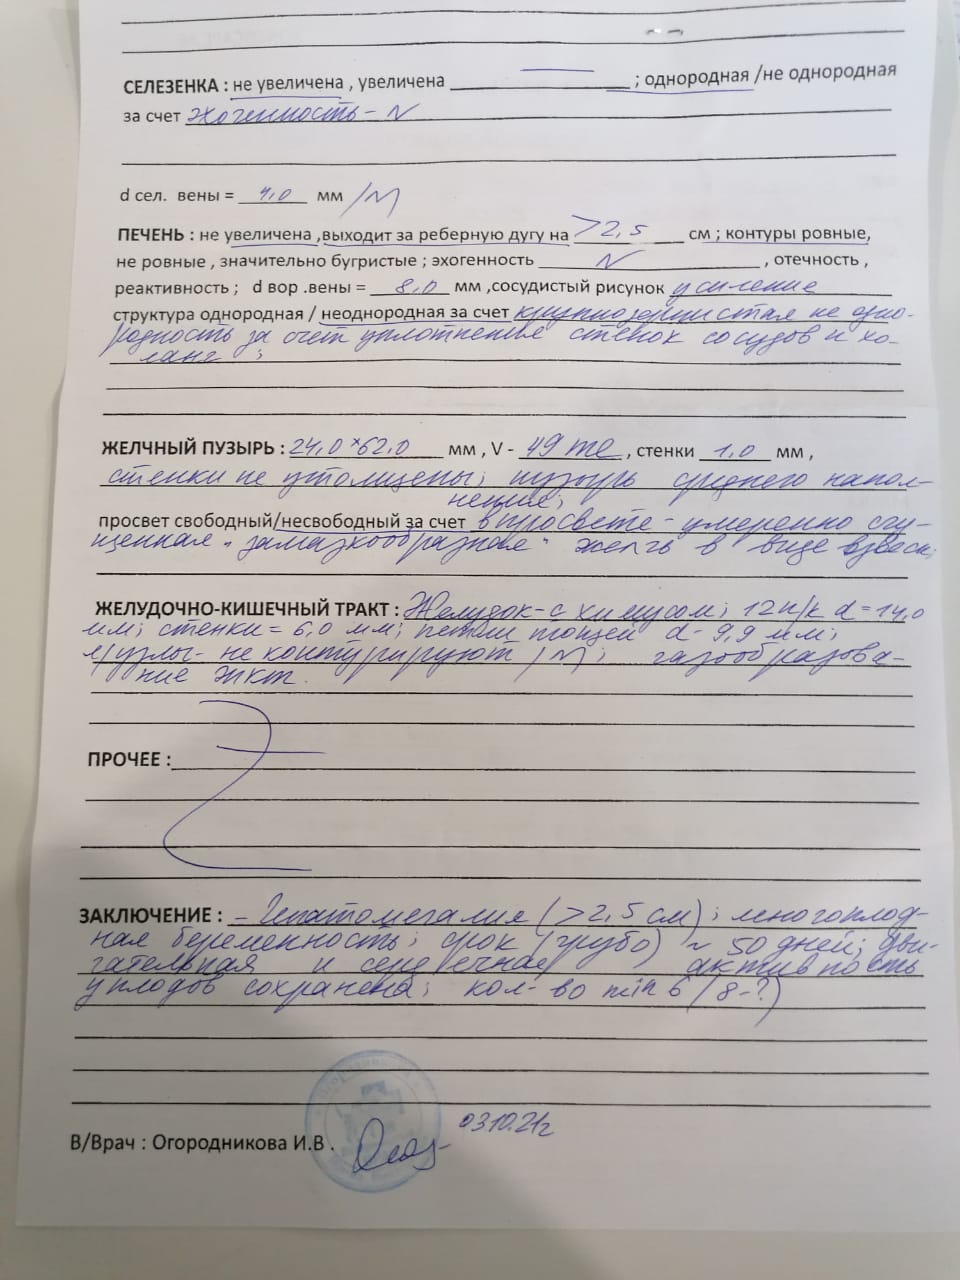 СЕЛЕЗЕНКА : не увеличена , увеличена ; однородная /не однородная
за счет эхогенность - N
d сел. вены = 4,0 мм /N
ПЕЧЕНЬ : не увеличена ,выходит за реберную дугу на >2,5 см ; контуры ровные,
не ровные , значительно бугристые ; эхогенность N , отечность ,
реактивность ; d вор .вены = 8,0 мм ,сосудистый рисунок усиление
структура однородная / неоднородная за счет крупнозернистая не одно-
родность за счет уплотнение стенок сосудов и хо-
ланг ;
ЖЕЛЧНЫЙ ПУЗЫРЬ : 24,0 × 62,0 мм , V - 49 ml , стенки 1,0 мм ,
стенки не утолщены; пузырь среднего напол-
нения;
просвет свободный/несвободный за счет в просвете - умеренно сгу-
щенная "замазкообразное" желчь в виде взвеси;
ЖЕЛУДОЧНО-КИШЕЧНЫЙ ТРАКТ : Желудок - с химусом; 12п/к d = 14,0
мм; стенки = 6,0 мм; петли тощей d - 9,9 мм;
л/узлы - не контурируют /N; газообразова-
ние жкт.
ПРОЧЕЕ :
ЗАКЛЮЧЕНИЕ : - Гепатомегалия (>2,5 см); многоплод-
ная беременность; срок (грубо) ~ 50 дней; дви-
гательная и сердечная активность
у плодов сохранена; кол-во min 6 (8-?)
В/Врач : Огородникова И.В .
03.10.21г